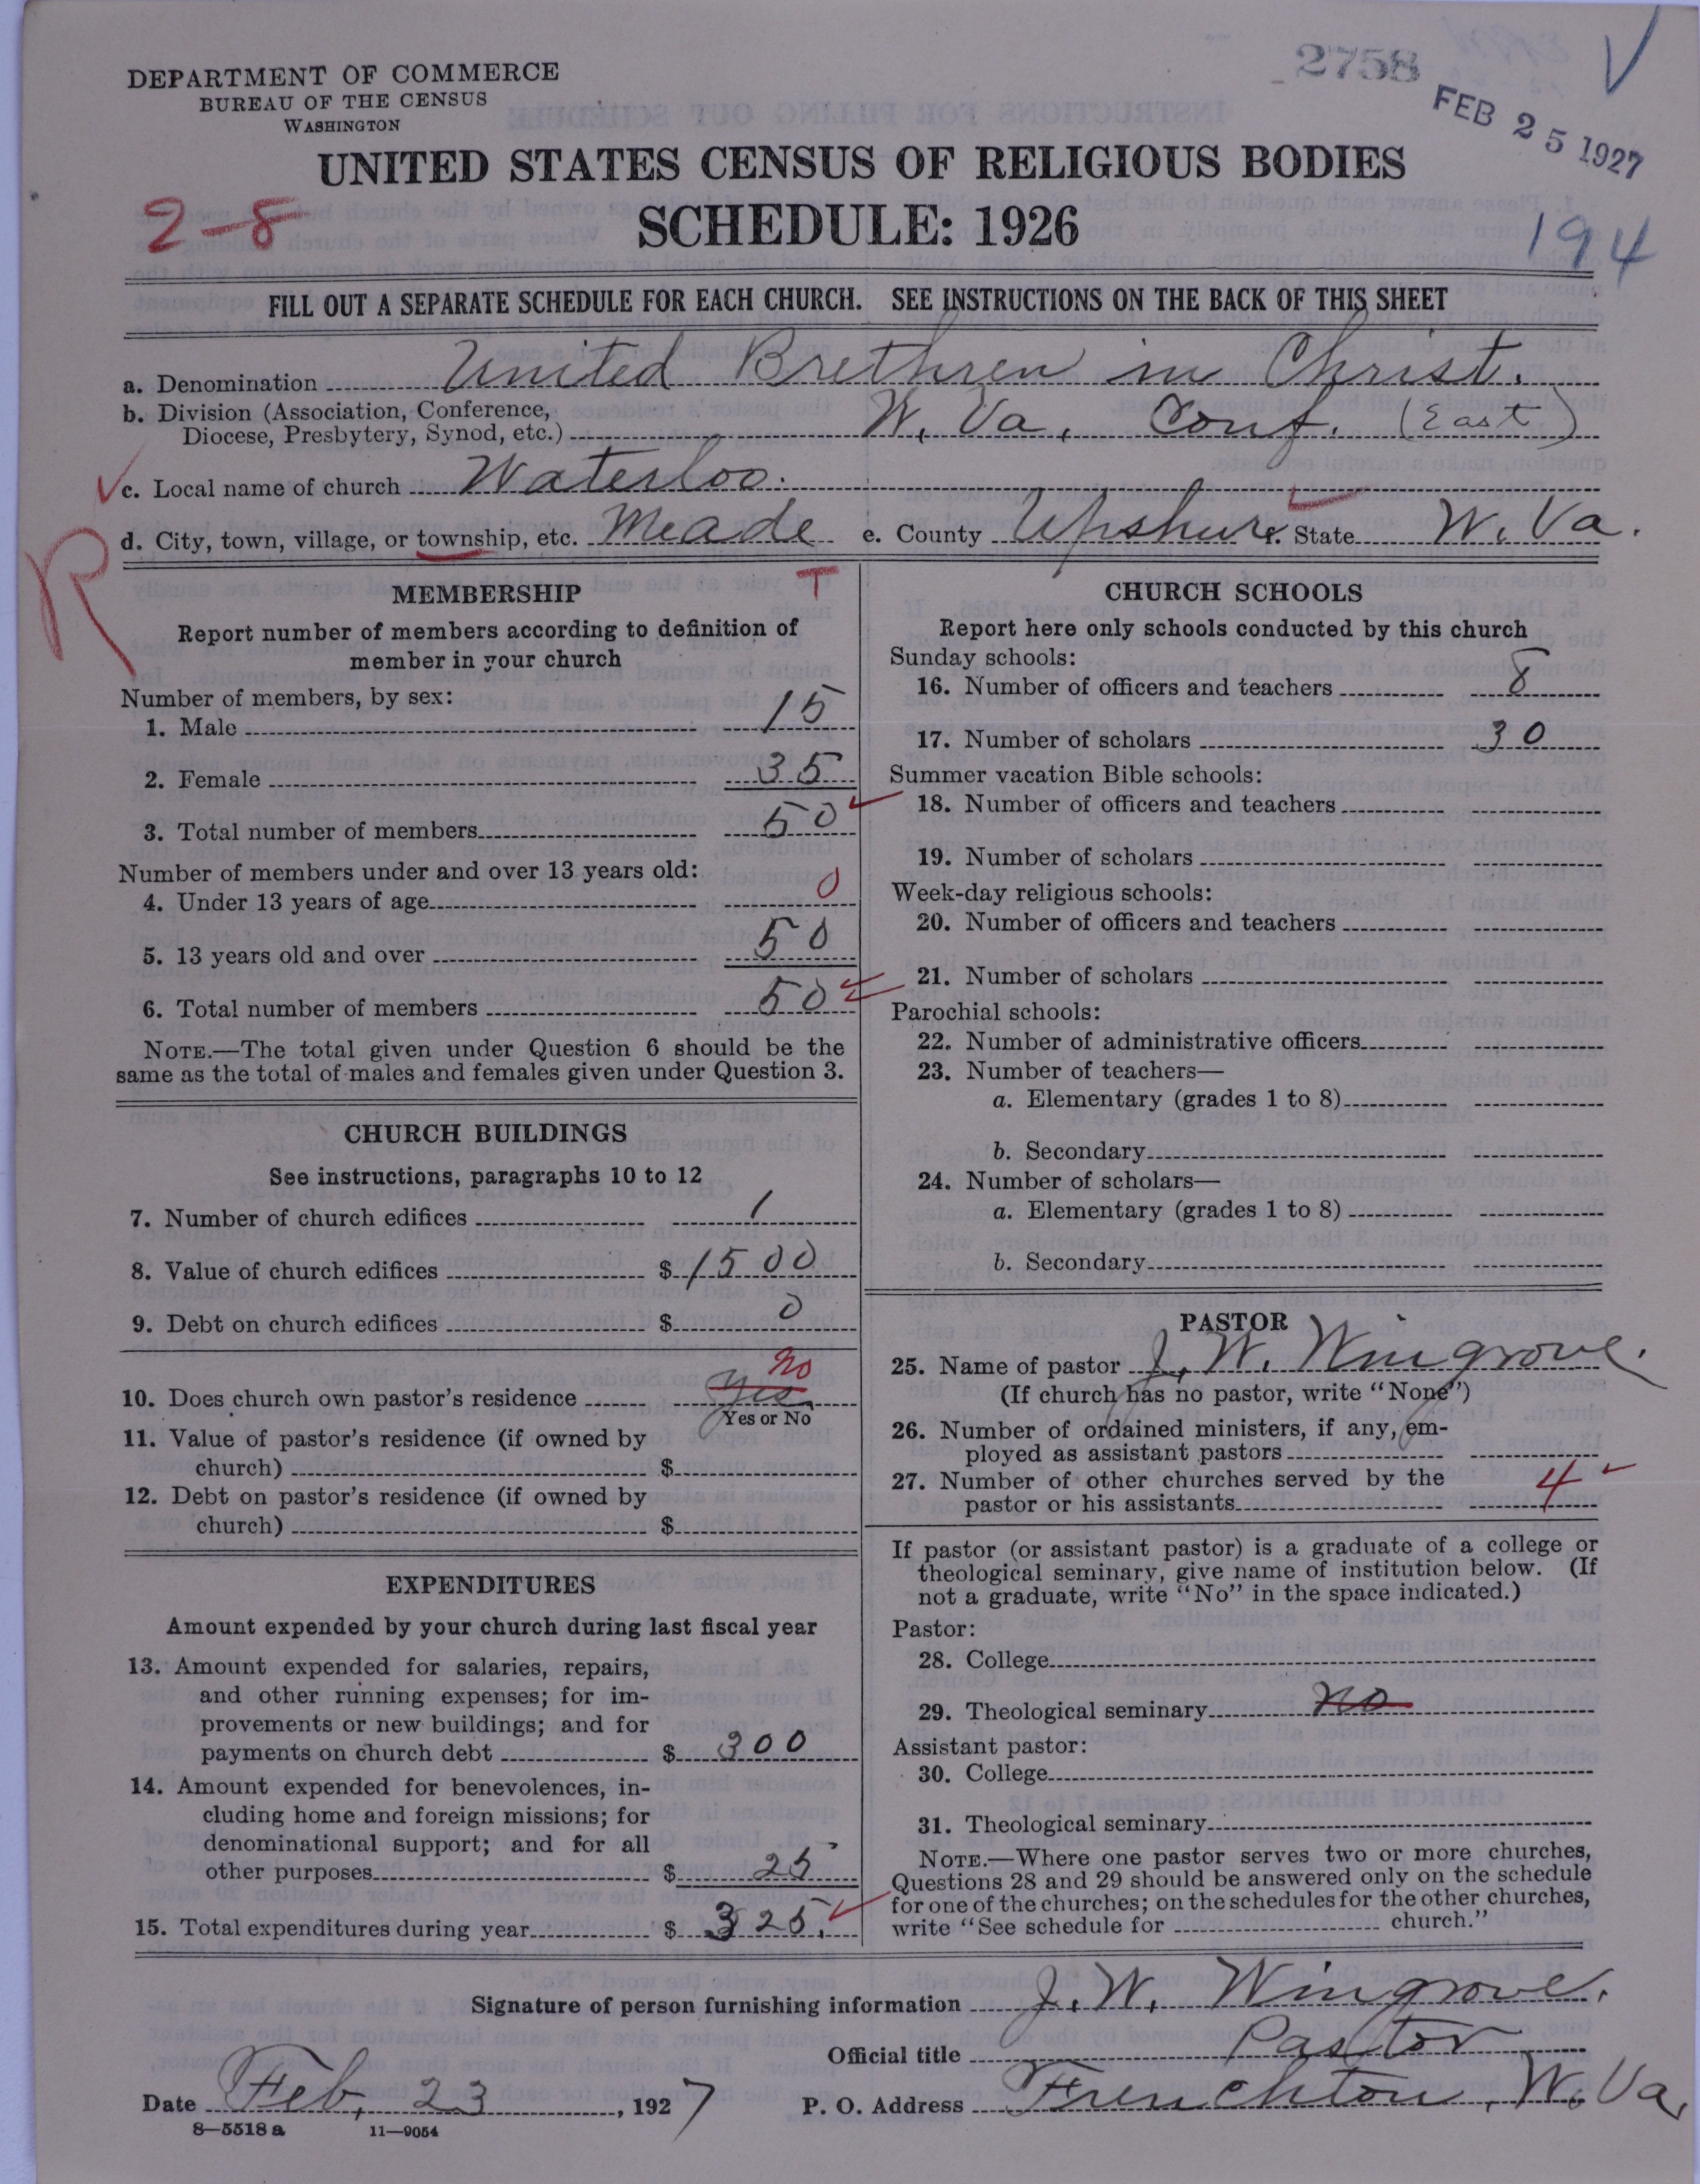 2758
FEB 25 1927
DEPARTMENT OF COMMERCE
BUREAU OF THE CENSUS
WASHINGTON
UNITED STATES CENSUS OF RELIGIOUS BODIES
2-8
SCHEDULE: 1926
194
FILL OUT A SEPARATE SCHEDULE FOR EACH CHURCH. SEE INSTRUCTIONS ON THE BACK OF THIS SHEET
a. Denomination United Brethren in Christ.
b. Division (Association, Conference,
Diocese, Presbytery, Synod, etc.) W. Va. Conf. (East)
c. Local name of church Waterloo.
d. City, town, village, or township, etc. Meade e. County Upshur f. State W. Va.
R
T
MEMBERSHIP
Report number of members according to definition of
member in your church
Number of members, by sex:
1. Male 15
2. Female 35
3. Total number of members 50
Number of members under and over 13 years old:
4. Under 13 years of age 0
5. 13 years old and over 50
6. Total number of members 50
NOTE.—The total given under Question 6 should be the
same as the total of males and females given under Question 3.
CHURCH BUILDINGS
See instructions, paragraphs 10 to 12
7. Number of church edifices 1
8. Value of church edifices $ 1500
9. Debt on church edifices $ 0
no
10. Does church own pastor's residence yes
Yes or No
11. Value of pastor's residence (if owned by
church) $
12. Debt on pastor's residence (if owned by
church) $
EXPENDITURES
Amount expended by your church during last fiscal year
13. Amount expended for salaries, repairs,
and other running expenses; for im-
provements or new buildings; and for
payments on church debt $ 300
14. Amount expended for benevolences, in-
cluding home and foreign missions; for
denominational support; and for all
other purposes $ 25
15. Total expenditures during year $ 325.
CHURCH SCHOOLS
Report here only schools conducted by this church
Sunday schools:
16. Number of officers and teachers 8
17. Number of scholars 30
Summer vacation Bible schools:
18. Number of officers and teachers
19. Number of scholars
Week-day religious schools:
20. Number of officers and teachers
21. Number of scholars
Parochial schools:
22. Number of administrative officers
23. Number of teachers—
a. Elementary (grades 1 to 8)
b. Secondary
24. Number of scholars—
a. Elementary (grades 1 to 8)
b. Secondary
PASTOR
25. Name of pastor J. W. Wingrove.
(If church has no pastor, write "None")
26. Number of ordained ministers, if any, em-
ployed as assistant pastors
27. Number of other churches served by the
pastor or his assistants 4
If pastor (or assistant pastor) is a graduate of a college or
theological seminary, give name of institution below. (If
not a graduate, write "No" in the space indicated.)
Pastor:
28. College
29. Theological seminary no
Assistant pastor:
30. College
31. Theological seminary
NOTE.—Where one pastor serves two or more churches,
Questions 28 and 29 should be answered only on the schedule
for one of the churches; on the schedules for the other churches,
write "See schedule for church."
Signature of person furnishing information J. W. Wingrove.
Official title Pastor
Date Feb. 23, 1927 P. O. Address Frenchton, W. Va.
8—5518 a 11—9054